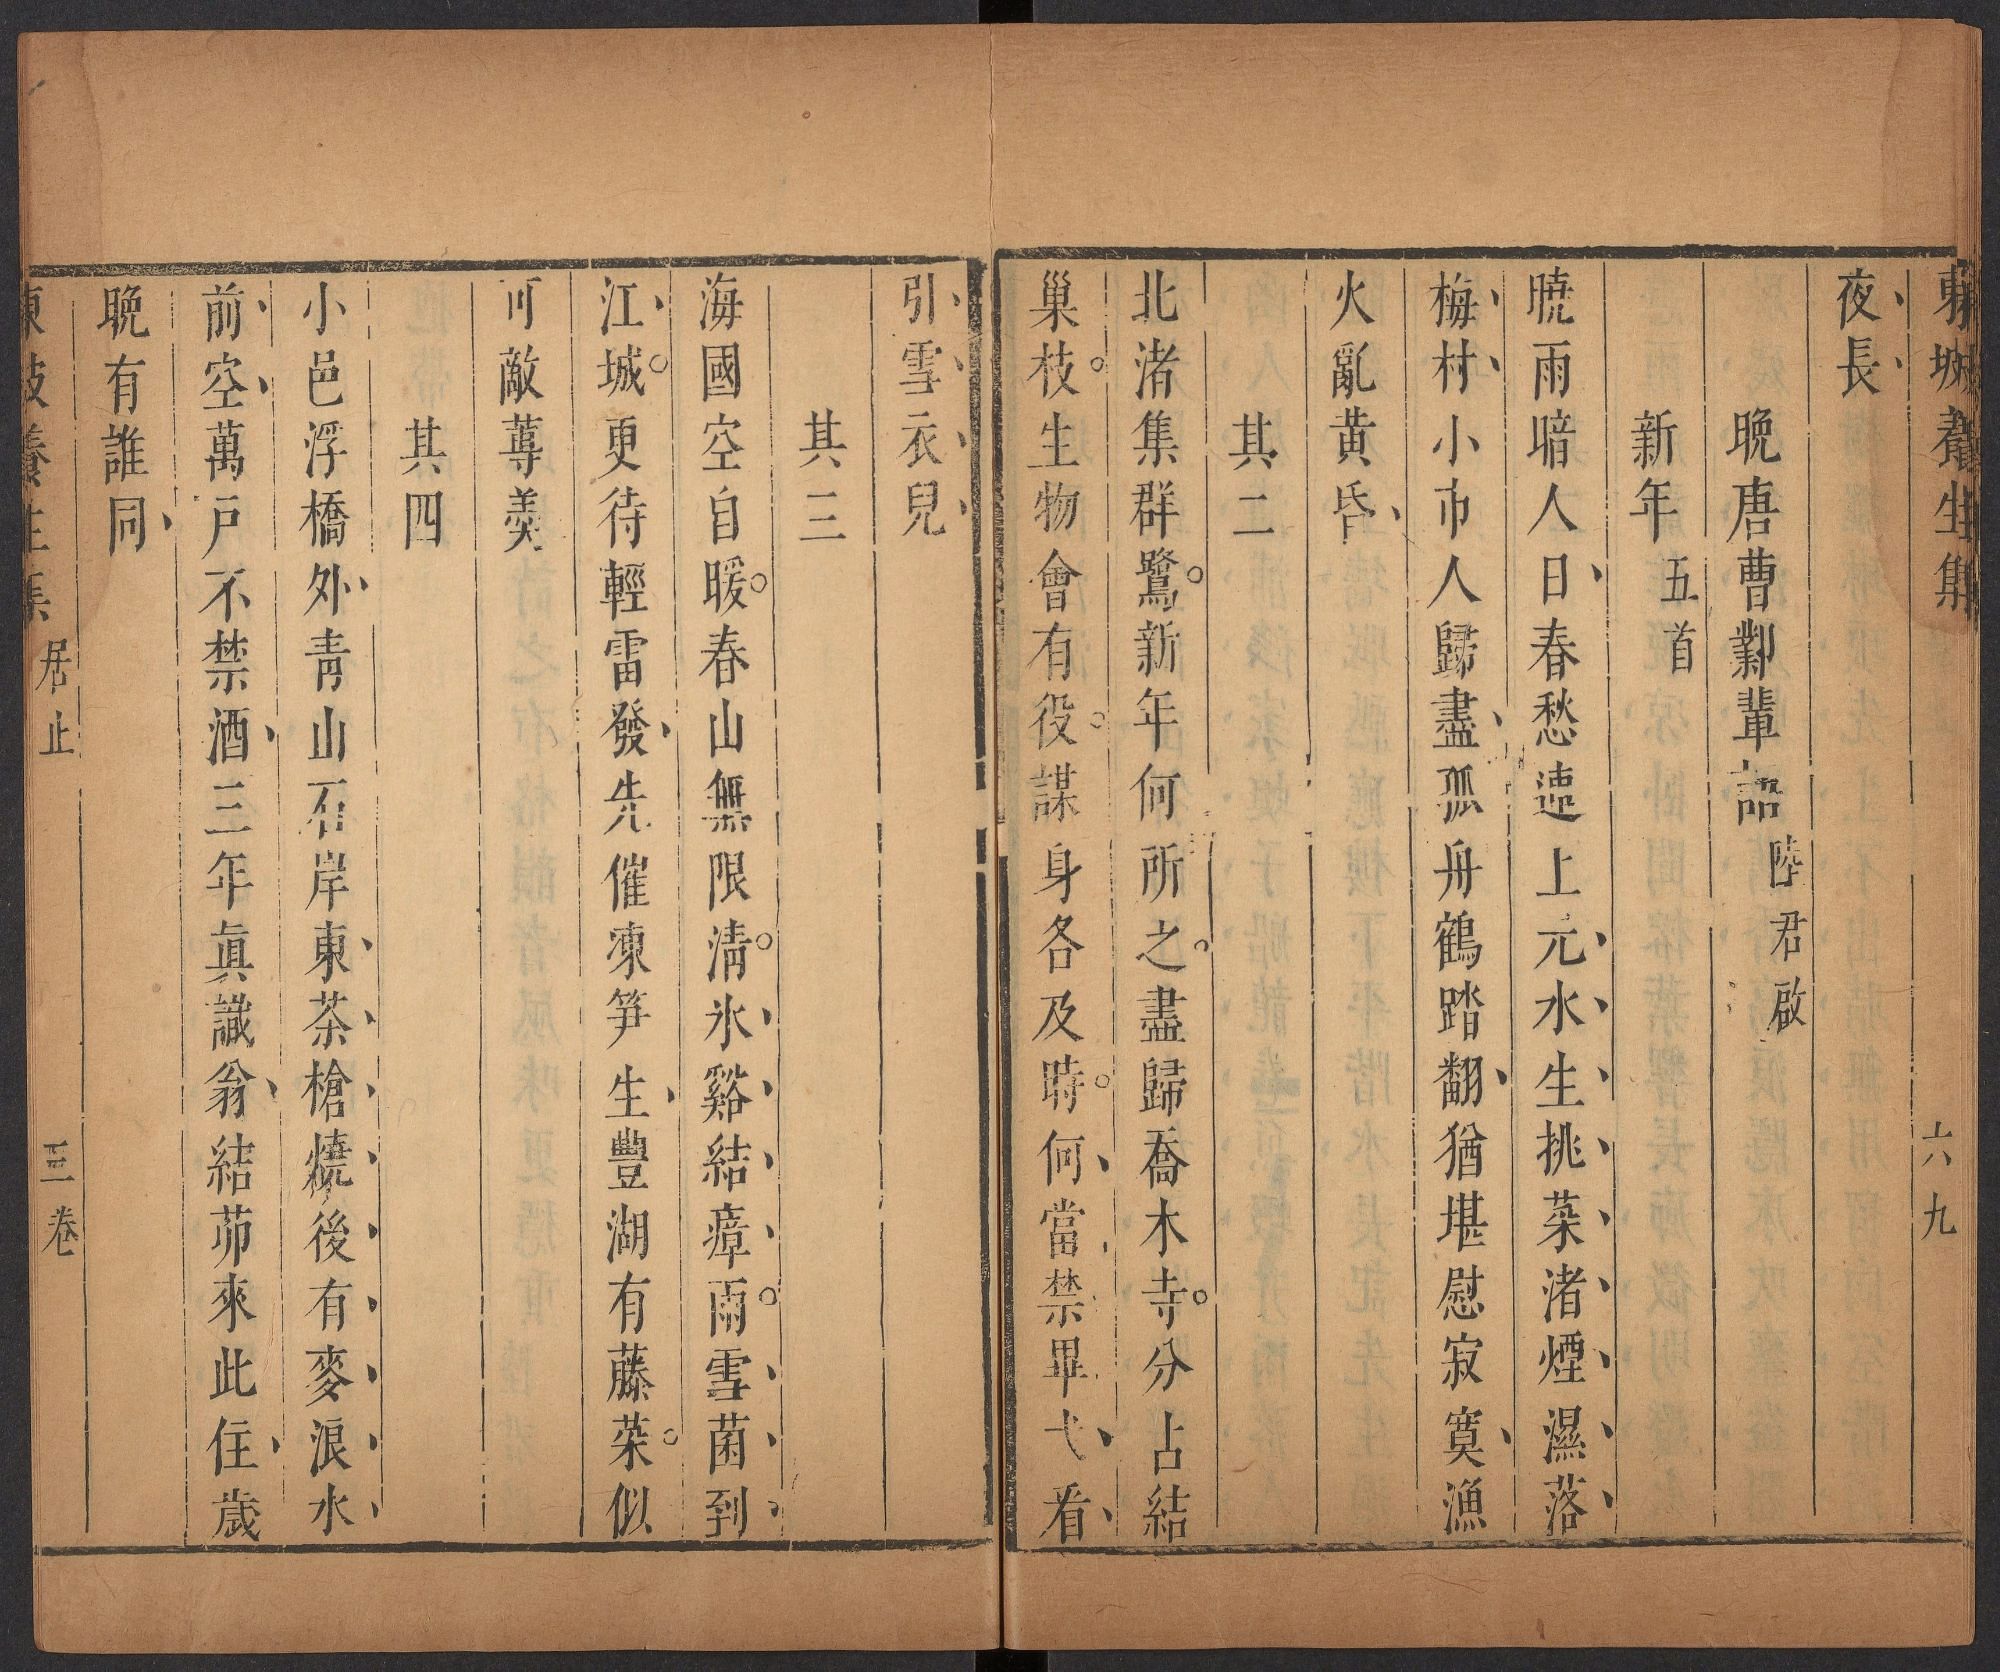 東坡養生集
六九
夜長
晩唐曹鄴輩語陸君啟
新年五首
曉雨暗人日春愁連上元水生挑菜渚煙濕落
梅村小市人歸盡孤舟鶴踏翻猶堪慰寂寞漁
火亂黄昏
其二
北渚集群鷺新年何所之盡歸喬木寺分占結
巢枝生物會有役謀身各及時何當禁畢弋看
引雪衣兒
其三
海國空自暖春山無限淸氷谿結瘴雨雪菌到
江城更待輕雷發先催凍笋生豐湖有藤菜似
可敵蓴羹
其四
小邑浮橋外靑山石岸東茶槍燒後有麥浪水
前空萬戸不禁酒三年眞識翁結茆來此住歲
晩有誰同
東坡養生集
居止
三卷